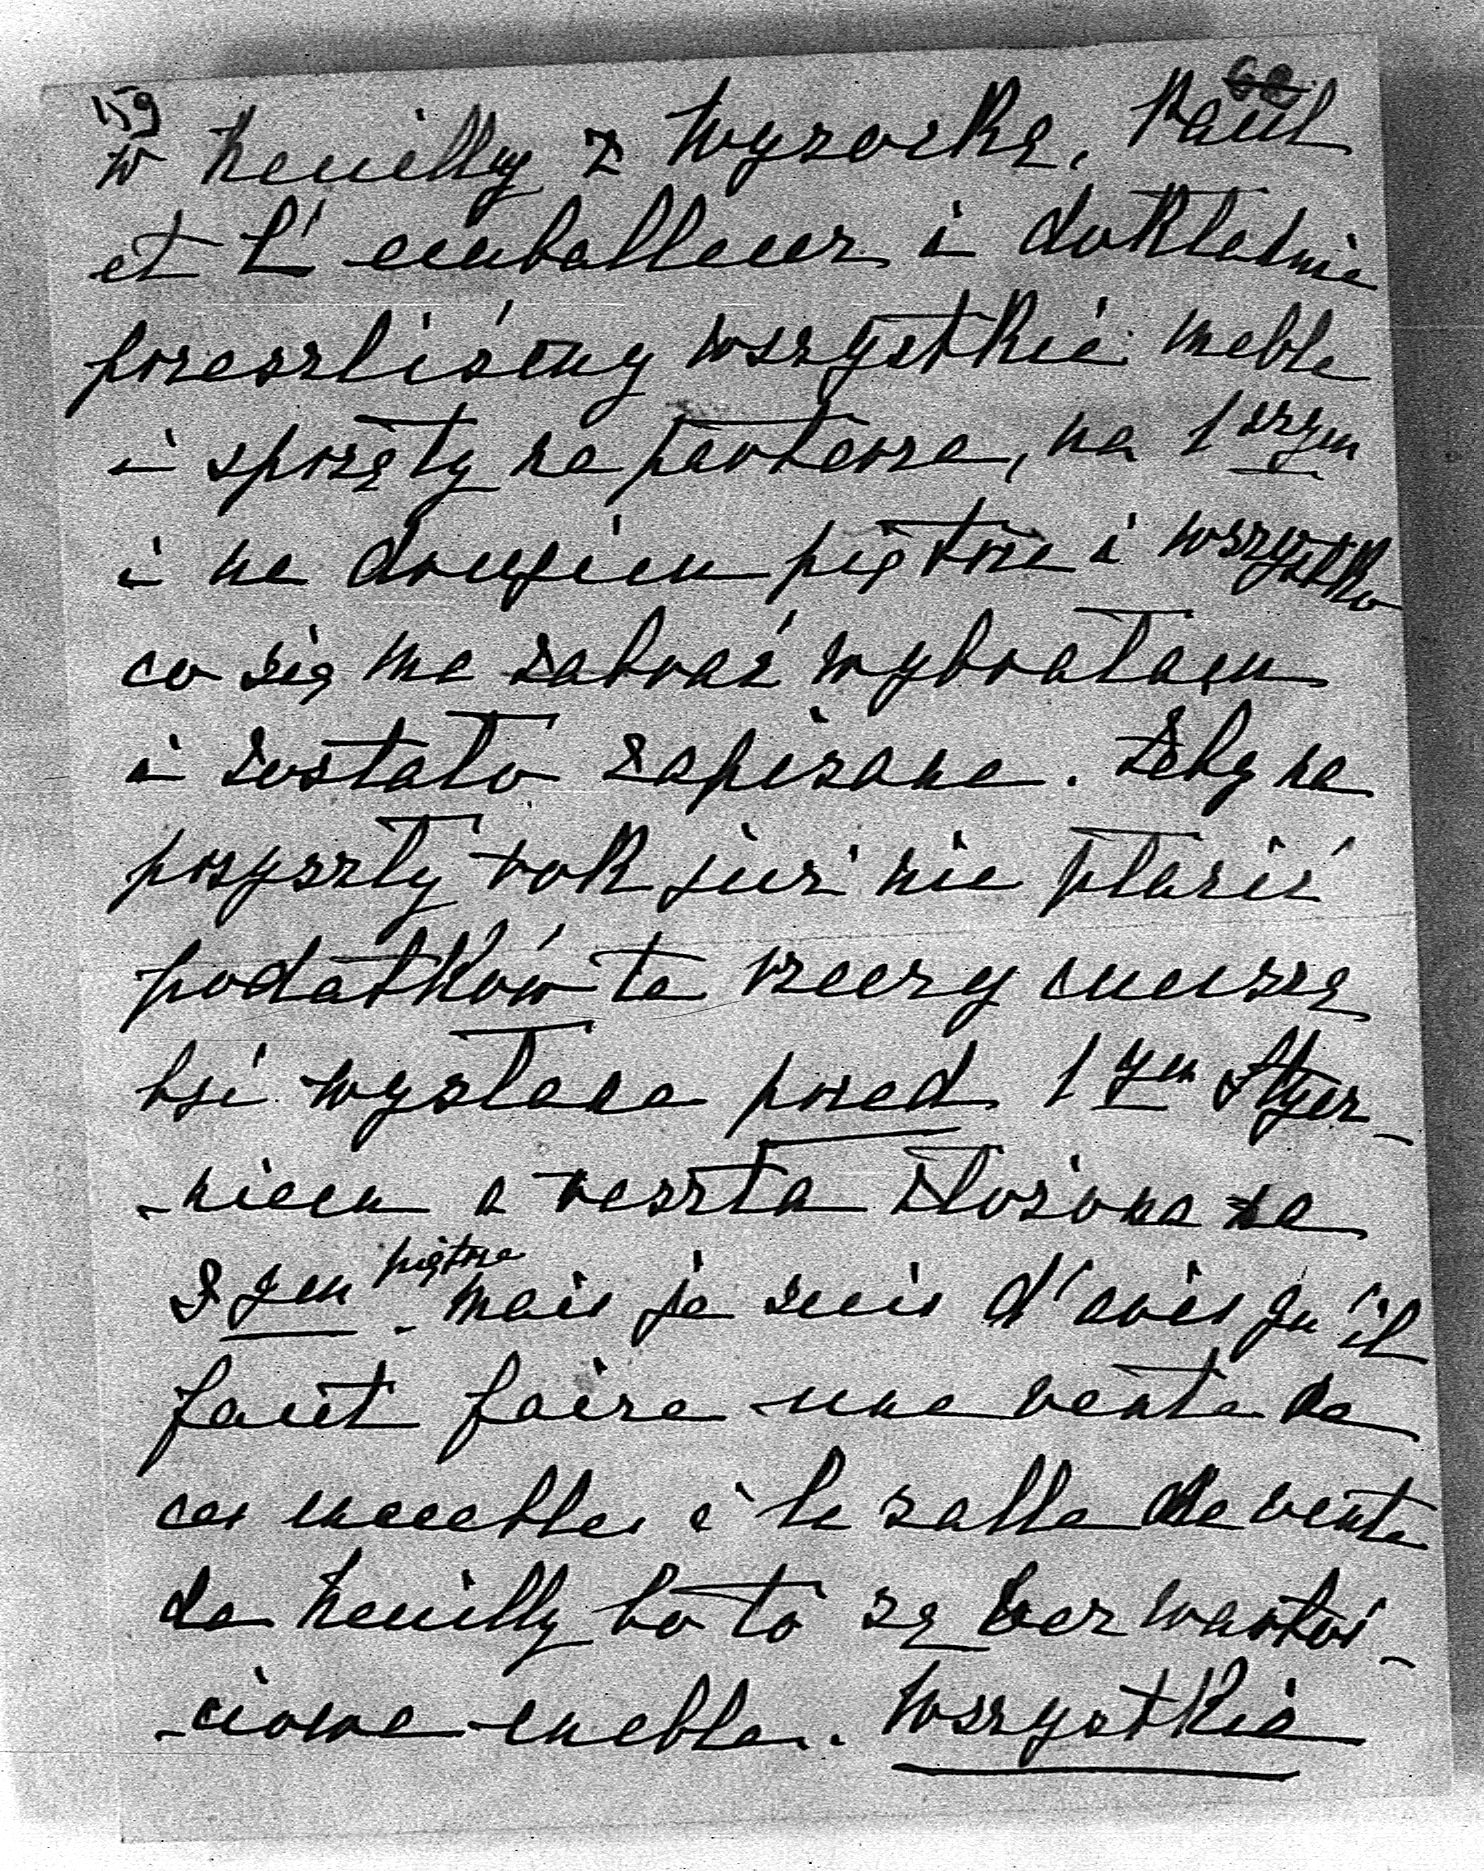 159 68
w Neuilly z Wysocką, Paul
et L'emballeur i dokładnie
przeszliśmy wszystkie meble
i sprzęty na parterze, na 1szym
i na drugiem piętrze i wszystko
co się ma zabrać wybrałam
i zostało zapisane. Żeby na
przyszły rok już nie płacić
podatków te rzeczy muszą
być wysłane przed 1ym Stycz-
-niem a reszta złożona na
I ym piętrze - mais je suis d'avis qu'il
faut faire une vente de
ces meubles à la salle de vente
de Neuilly bo to są bez wartoś-
-ciowe meble. Wszystkie